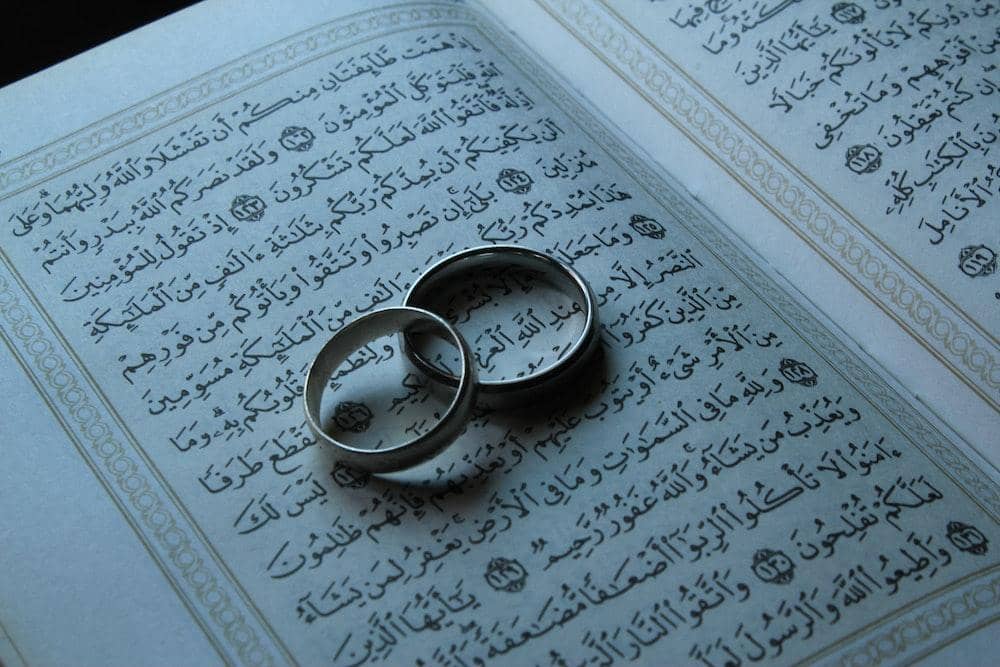 فِيهَا
كِنْ أَنفُسَهُمْ
يَٰٓأَيُّهَا ٱلَّذِينَ ١١٧
مِّن دُونِكُمْ لَا يَأْلُونَكُمْ خَبَالًا
مِنْ أَفْوَٰهِهِمْ وَمَا تُخْفِى
إِن كُنتُمْ تَعْقِلُونَ ١١٨
بِٱلْكِتَٰبِ كُلِّهِۦ
ٱلْأَنَامِلَ
١١٩
إِذْ هَمَّت طَّآئِفَتَانِ مِنكُمْ أَن تَفْشَلَا وَٱللَّهُ وَلِيُّهُمَا ۗ وَعَلَى
ٱللَّهِ فَلْيَتَوَكَّلِ ٱلْمُؤْمِنُونَ ١٢٢ وَلَقَدْ نَصَرَكُمُ ٱللَّهُ بِبَدْرٍ وَأَنتُمْ
أَذِلَّةٌ ۖ فَٱتَّقُوا۟ ٱللَّهَ لَعَلَّكُمْ تَشْكُرُونَ ١٢٣ إِذْ تَقُولُ لِلْمُؤْمِنِينَ
أَلَن يَكْفِيَكُمْ أَن يُمِدَّكُمْ رَبُّكُم بِثَلَٰثَةِ ءَالَٰفٍ مِّنَ ٱلْمَلَٰٓئِكَةِ
مُنزَلِينَ ١٢٤ بَلَىٰٓ ۚ إِن تَصْبِرُوا۟ وَتَتَّقُوا۟ وَيَأْتُوكُم مِّن فَوْرِهِمْ
هَٰذَا يُمْدِدْكُمْ رَبُّكُم ءَالَٰفٍ مِّنَ ٱلْمَلَٰٓئِكَةِ مُسَوِّمِينَ
١٢٥ وَمَا جَعَلَهُ إِلَّا بُشْرَىٰ وَلِتَطْمَئِنَّ قُلُوبُكُم بِهِۦ ۗ وَمَا
ٱلنَّصْرُ إِلَّا مِنْ عِندِ ٱللَّهِ ٱلْعَزِيزِ ١٢٦ لِيَقْطَعَ طَرَفًا
مِّنَ ٱلَّذِينَ كَفَرُوٓا۟ ١٢٧ لَيْسَ لَكَ
مِنَ ٱلْأَمْرِ شَىْءٌ أَوْ يَتُوبَ عَلَيْهِمْ أَوْ يُعَذِّبَهُمْ فَإِنَّهُمْ ظَٰلِمُونَ
١٢٨ وَلِلَّهِ مَا فِى ٱلسَّمَٰوَٰتِ وَمَا فِى ٱلْأَرْضِ ۚ يَغْفِرُ لِمَن يَشَآءُ
وَيُعَذِّبُ مَن يَشَآءُ ۚ وَٱللَّهُ غَفُورٌ رَّحِيمٌ ١٢٩ يَٰٓأَيُّهَا ٱلَّذِينَ
ءَامَنُوا۟ لَا تَأْكُلُوا۟ ٱلرِّبَوٰٓا۟ أَضْعَٰفًا مُّضَٰعَفَةً ۖ وَٱتَّقُوا۟
لَعَلَّكُمْ تُفْلِحُونَ ١٣٠ وَٱتَّقُوا۟ ٱلنَّارَ ٱلَّتِىٓ
١٣١ وَأَطِيعُوا۟ ٱللَّهَ وَٱلرَّسُولَ